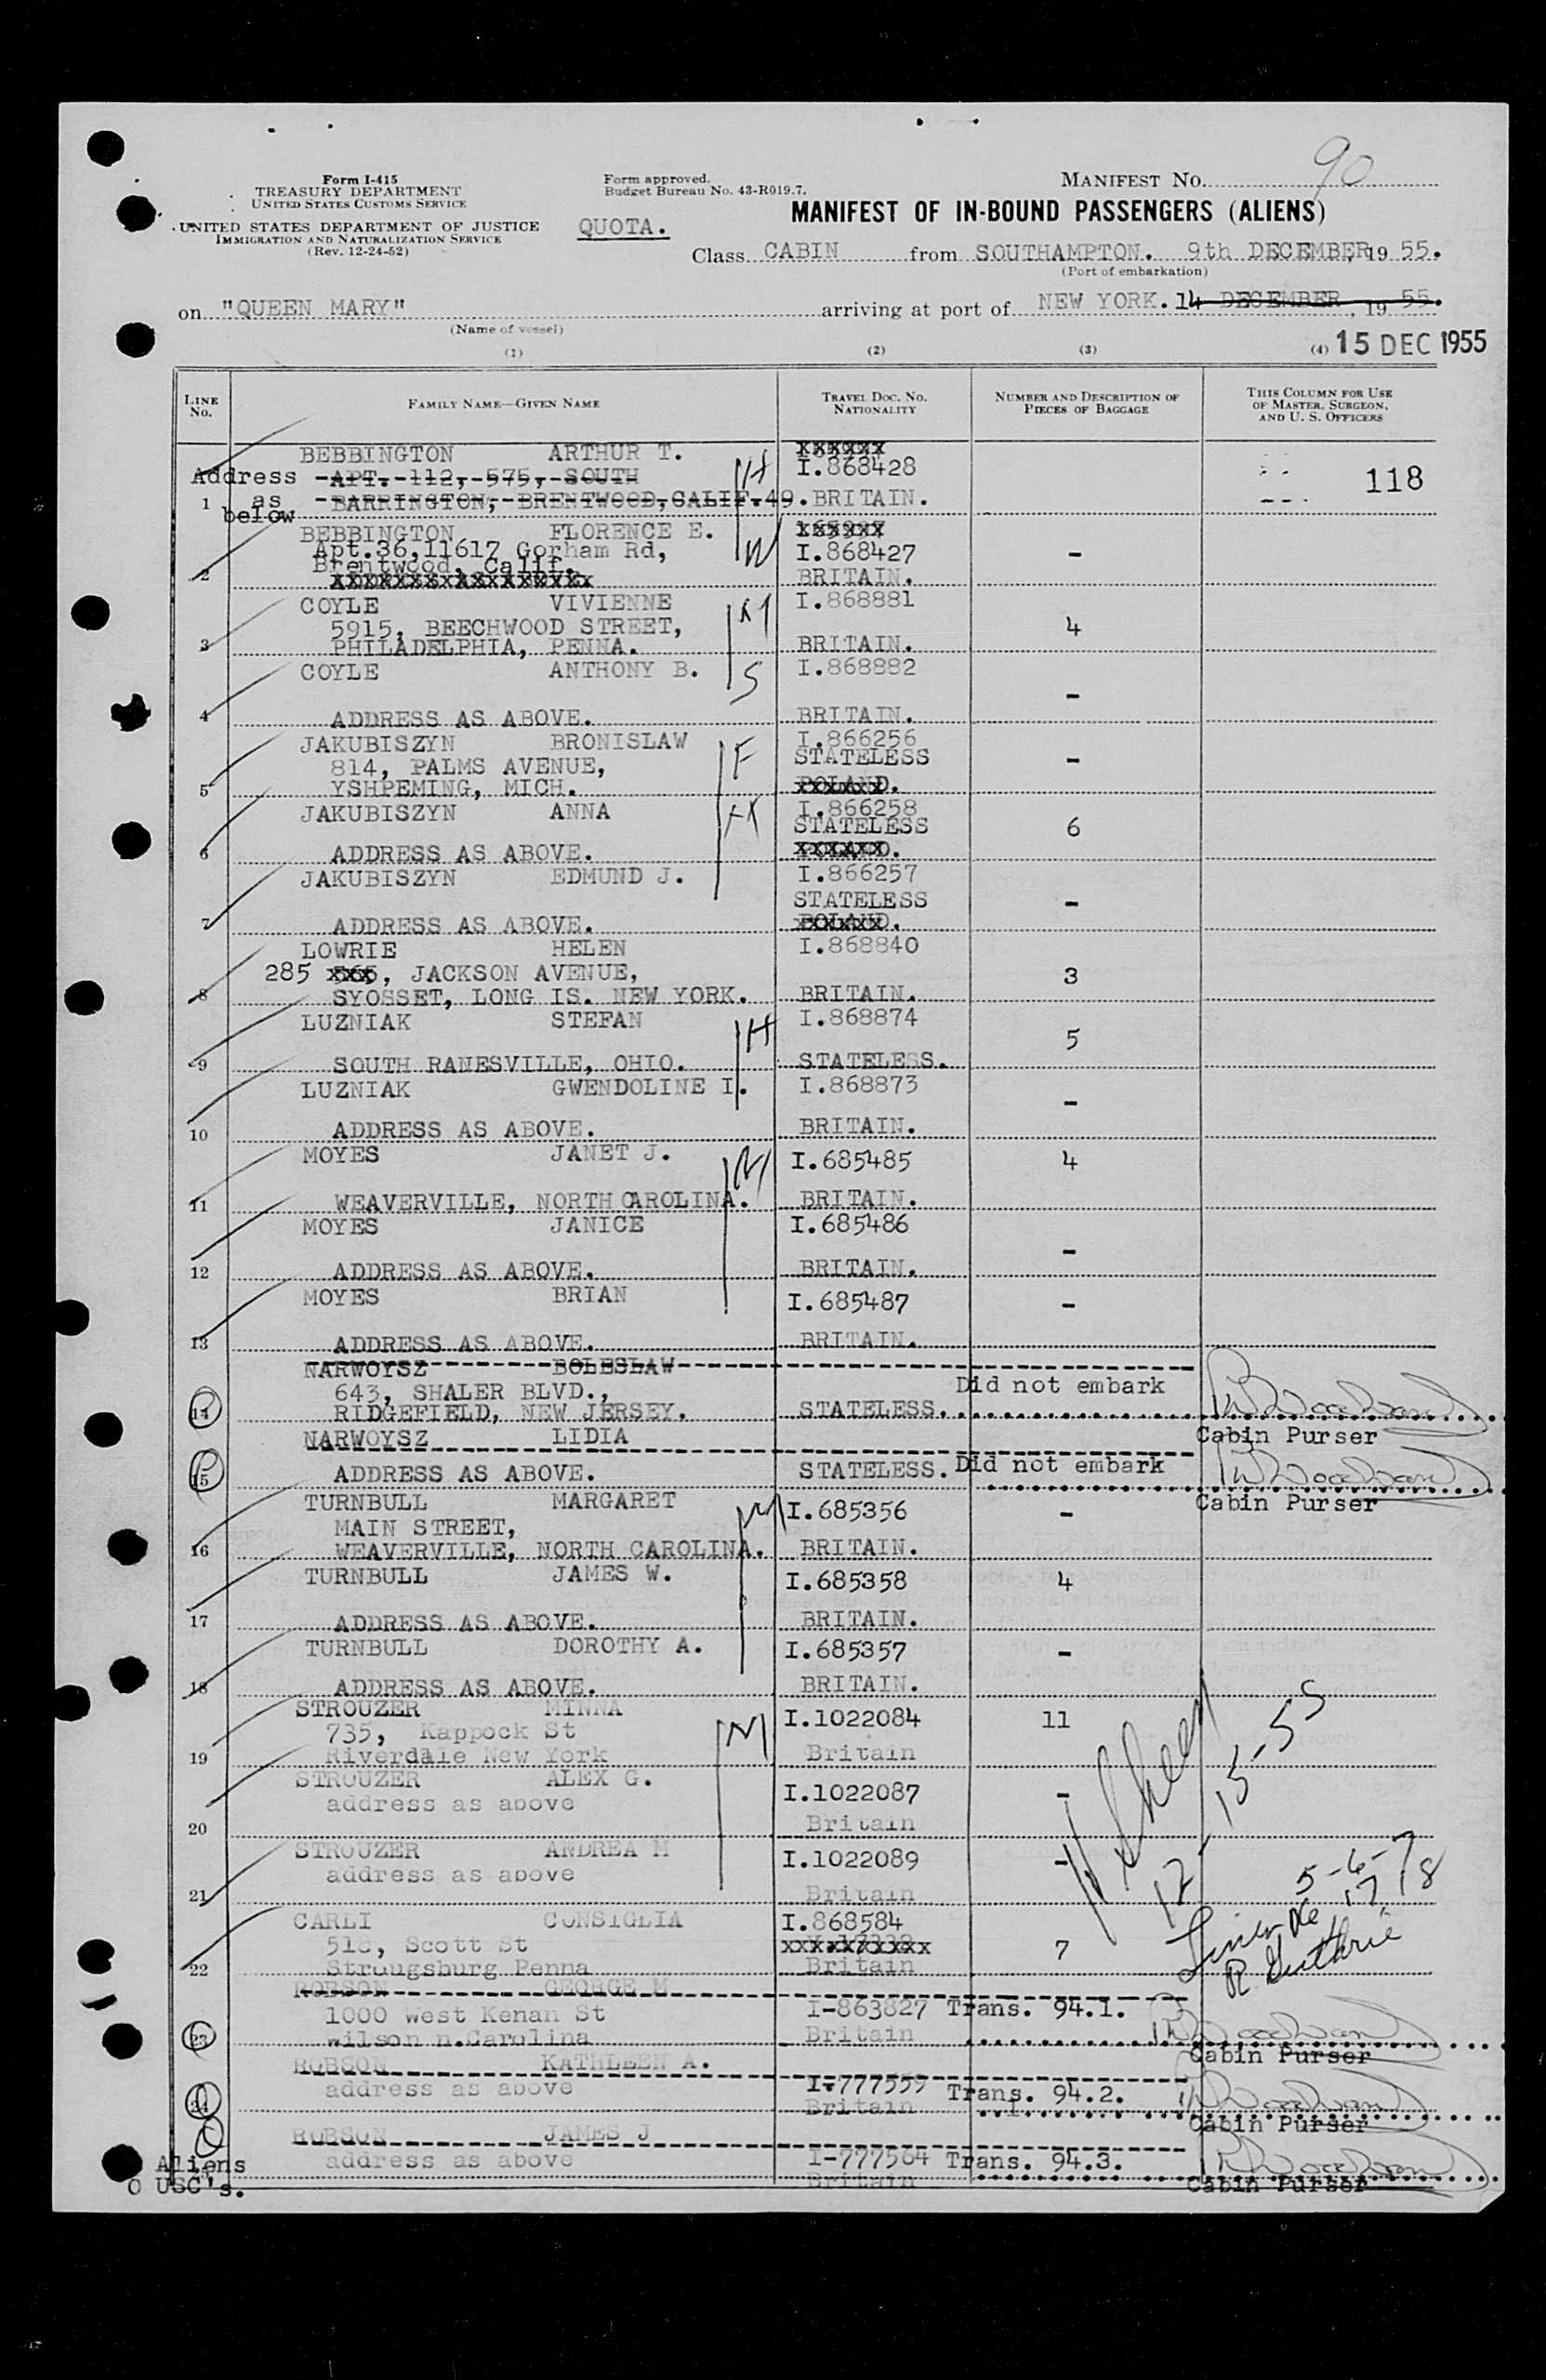 90
Form I-415
TREASURY DEPARTMENT
UNITED STATES CUSTOMS SERVICE
UNITED STATES DEPARTMENT OF JUSTICE
IMMIGRATION AND NATURALIZATION SERVICE
(Rev. 12-24-52)
Form approved.
Budget Bureau No. 43-R019.7.
MANIFEST NO.
QUOTA.
MANIFEST OF IN-BOUND PASSENGERS (ALIENS)
Class CABIN from SOUTHAMPTON. 9th DECEMBER, 19 55.
(Port of embarkation)
on "QUEEN MARY" arriving at port of NEW YORK. 14 DECEMBER, 19 55.
(Name of vessel)
(1) (2) (3) (4) 15 DEC 1955
LINE No. FAMILY NAME—GIVEN NAME TRAVEL DOC. NO. NATIONALITY NUMBER AND DESCRIPTION OF PIECES OF BAGGAGE THIS COLUMN FOR USE OF MASTER, SURGEON, AND U. S. OFFICERS
BEBBINGTON ARTHUR T. xxxxxx
Address APT. 112, 575, SOUTH H I.868428 118
1 as below BARRINGTON, BRENTWOOD, CALIF. 49. BRITAIN.
BEBBINGTON FLORENCE E. xxxxxx
Apt.36,11617 Gorham Rd, W I.868427 -
Brentwood, Calif.
2 xxxxxxxxxxxxxxxxx BRITAIN.
COYLE VIVIENNE M I.868881
5915, BEECHWOOD STREET, 4
3 PHILADELPHIA, PENNA. BRITAIN.
COYLE ANTHONY B. S I.868882
-
4 ADDRESS AS ABOVE. BRITAIN.
JAKUBISZYN BRONISLAW F I.866256
814, PALMS AVENUE, STATELESS -
5 YSHPEMING, MICH. POLAND.
JAKUBISZYN ANNA I.866258
STATELESS 6
6 ADDRESS AS ABOVE. POLAND.
JAKUBISZYN EDMUND J. I.866257
STATELESS -
7 ADDRESS AS ABOVE. POLAND.
LOWRIE HELEN I.868840
285 xxx, JACKSON AVENUE, 3
8 SYOSSET, LONG IS. NEW YORK. BRITAIN.
LUZNIAK STEFAN H I.868874
5
9 SOUTH RANESVILLE, OHIO. STATELESS.
LUZNIAK GWENDOLINE I. I.868873
-
10 ADDRESS AS ABOVE. BRITAIN.
MOYES JANET J. M I.685485 4
11 WEAVERVILLE, NORTH CAROLINA. BRITAIN.
MOYES JANICE I.685486
-
12 ADDRESS AS ABOVE. BRITAIN.
MOYES BRIAN I.685487 -
13 ADDRESS AS ABOVE. BRITAIN.
NARWOYSZ BOLESLAW
643, SHALER BLVD., Did not embark
14 RIDGEFIELD, NEW JERSEY. STATELESS.
NARWOYSZ LIDIA Cabin Purser
15 ADDRESS AS ABOVE. STATELESS. Did not embark
TURNBULL MARGARET M I.685356 - Cabin Purser
MAIN STREET,
16 WEAVERVILLE, NORTH CAROLINA. BRITAIN.
TURNBULL JAMES W. I.685358 4
17 ADDRESS AS ABOVE. BRITAIN.
TURNBULL DOROTHY A. I.685357 -
18 ADDRESS AS ABOVE. BRITAIN.
STROUZER MINNA M I.1022084 11
735, Kappock St
19 Riverdale New York Britain
STROUZER ALEX G. I.1022087 -
address as above
20 Britain
12-15-55
STROUZER ANDREA M I.1022089 -
address as above
21 Britain
5-6-7
17 18
CARLI CONSIGLIA I.868584
Scott St xxxxxxxxxx 7
22 Strougsburg Penna Britain
R Guthrie
ROBSON GEORGE M
1000 West Kenan St I-863827 Trans. 94.1.
23 wilson n.Carolina Britain
Cabin Purser
ROBSON KATHLEEN A.
address as above I-777559 Trans. 94.2.
24 Britain
Cabin Purser
ROBSON JAMES J
address as above I-777564 Trans. 94.3.
Aliens
0 USC's. Britain Cabin Purser